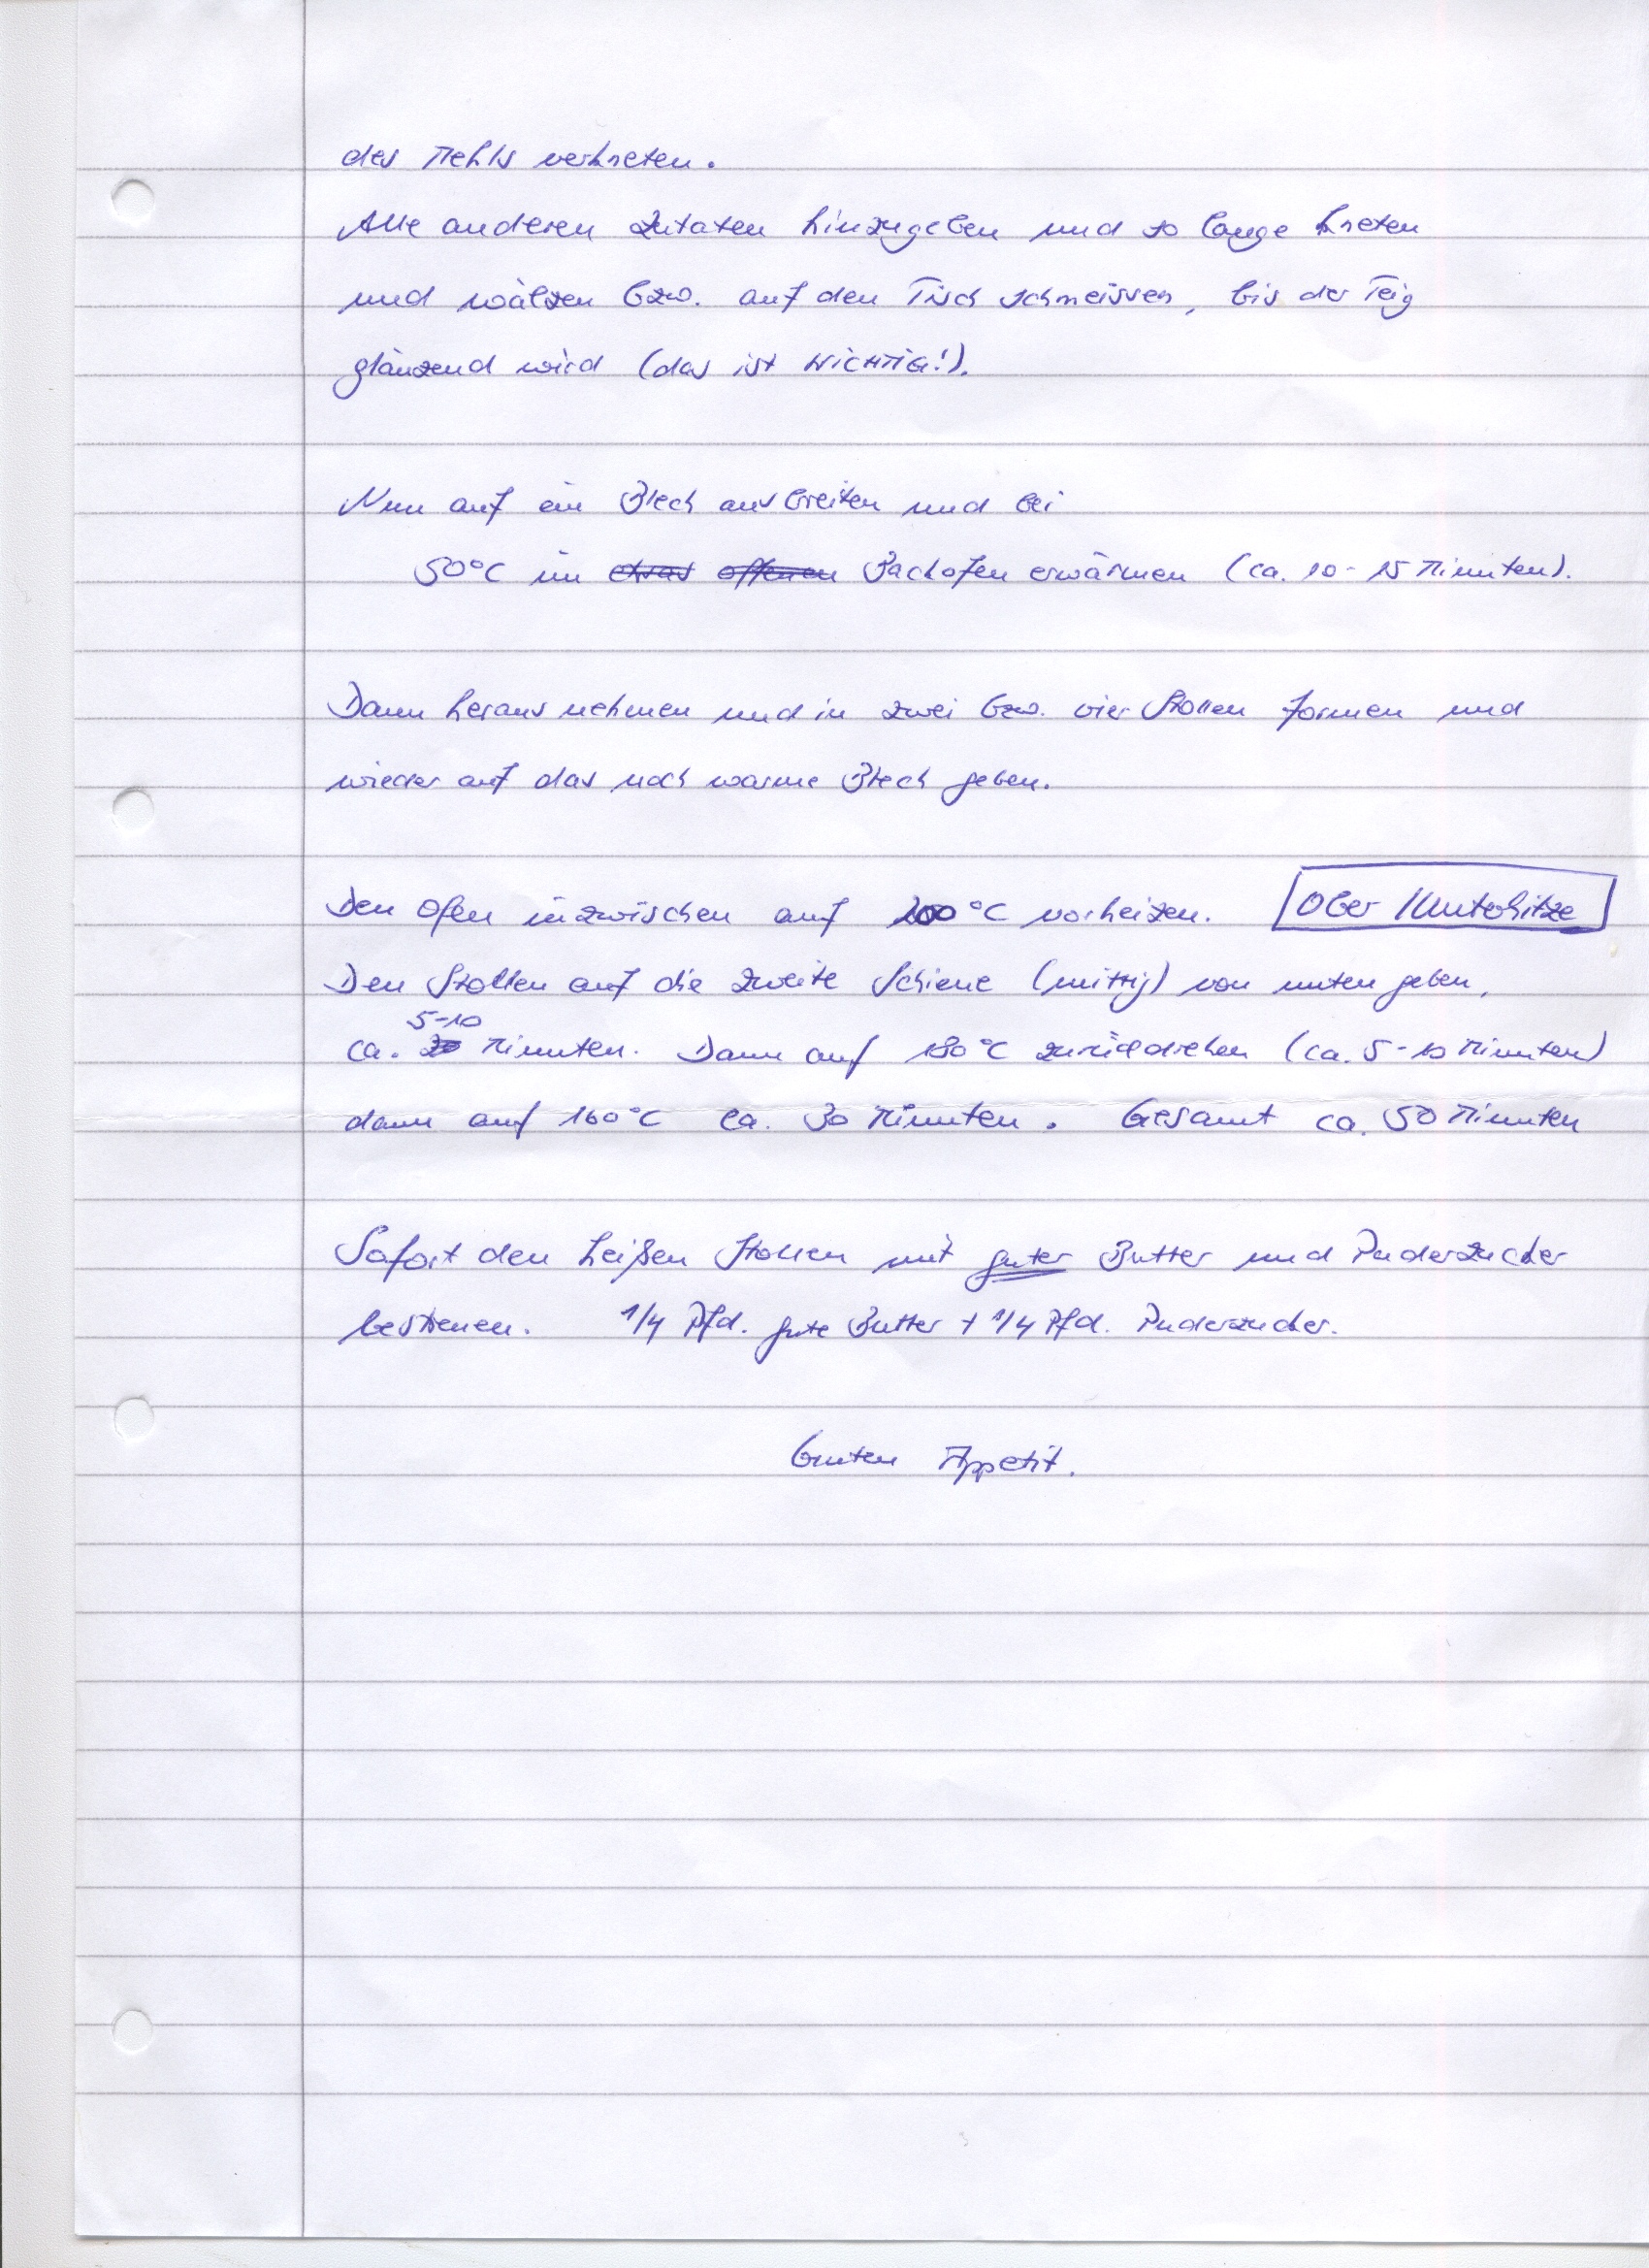 des Mehls verkneten.
Alle anderen Zutaten hinzugeben und so lange kneten
und wälzen bzw. auf den Tisch schmeissen, bis der Teig
glänzend wird (das ist WICHTIG!).
Nun auf ein Blech ausbreiten und bei
50°C im etwas offenen Backofen erwärmen (ca. 10-15 Minuten).
Dann herausnehmen und in zwei bzw. vier Stollen formen und
wieder auf das noch warme Blech geben.
Den Ofen inzwischen auf 200°C vorheizen. Ober/Unterhitze
Den Stollen auf die zweite Schiene (mittig) von unten geben,
5-10
ca. 20 Minuten. Dann auf 180°C zurückdrehen (ca. 5-10 Minuten)
dann auf 160°C ca. 30 Minuten. Gesamt ca. 50 Minuten
Sofort den heißen Stollen mit guter Butter und Puderzucker
bestreuen. 1/4 Pfd. gute Butter + 1/4 Pfd. Puderzucker.
Guten Appetit.